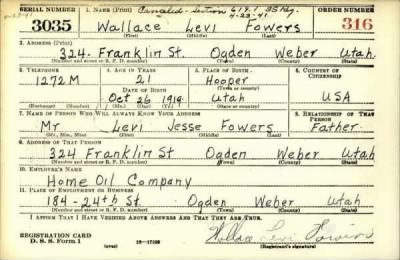 SERIAL NUMBER 1. NAME (Print) Cancelled - Section 619.1 SS Reg. ORDER NUMBER
4-23-41 4-23-41
3035 Wallace Levi Fowers 316
(First) (Middle) (Last)
2. ADDRESS (Print)
324 Franklin St. Ogden Weber Utah.
(Number and street or R. F. D. number) (Town) (County) (State)
3. TELEPHONE 4. AGE IN YEARS 5. PLACE OF BIRTH 6. COUNTRY OF CITIZENSHIP
1272M 21 Hooper
DATE OF BIRTH (Town or county)
Oct 26 1919 Utah USA
(Exchange) (Number) (Mo.) (Day) (Yr.) (State or country)
7. NAME OF PERSON WHO WILL ALWAYS KNOW YOUR ADDRESS 8. RELATIONSHIP OF THAT PERSON
Mr Levi Jesse Fowers Father
(Mr., Mrs., Miss) (First) (Middle) (Last)
9. ADDRESS OF THAT PERSON
324 Franklin St Ogden Weber Utah
(Number and street or R. F. D. number) (Town) (County) (State)
10. EMPLOYER'S NAME
Home Oil Company
11. PLACE OF EMPLOYMENT OR BUSINESS
184-24th St. Ogden Weber Utah
(Number and street or R. F. D. number) (Town) (County) (State)
I AFFIRM THAT I HAVE VERIFIED ABOVE ANSWERS AND THAT THEY ARE TRUE.
REGISTRATION CARD
D. S. S. Form 1 (over) 16-17105 Wallace Levi Fowers
(Registrant's signature)